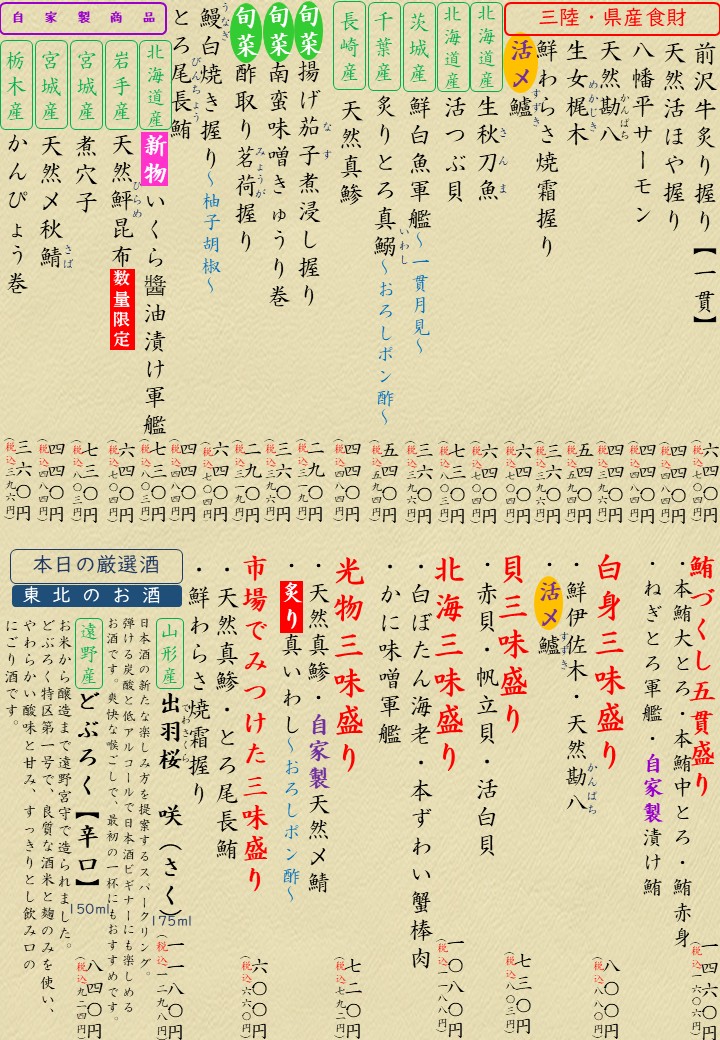 三陸・県産食財
前沢牛炙り握り【一貫】
六四〇円
(税込七〇四円)
天然活ほや握り
四四〇円
(税込四八四円)
八幡平サーモン
四四〇円
(税込四八四円)
天然勘八
かんぱち
四四〇円
生女梶木
めかじき
五四〇円
(税込五九四円)
鮮わらさ焼霜握り
三六〇円
(税込三九六円)
活〆鱸
すずき
六四〇円
(税込七〇四円)
北海道産
生秋刀魚
さんま
六四〇円
(税込七〇四円)
北海道産
活つぶ貝
七三〇円
(税込八〇三円)
茨城産
鮮白魚軍艦～一貫月見～
三六〇円
(税込三九六円)
千葉産
炙りとろ真鰯～おろしポン酢～
いわし
五四〇円
(税込五九四円)
長崎産
天然真鯵
四四〇円
(税込四八四円)
旬菜揚げ茄子煮浸し握り
なす
二九〇円
(税込三一九円)
旬菜南蛮味噌きゅうり巻
三六〇円
(税込三九六円)
旬菜酢取り茗荷握り
みょうが
二九〇円
(税込三一九円)
鰻白焼き握り～柚子胡椒～
うなぎ
六四〇円
(税込七〇四円)
とろ尾長鮪
びんちょう
四四〇円
(税込四八四円)
自家製商品
北海道産
新物いくら醬油漬け軍艦
七三〇円
(税込八〇三円)
岩手産
天然鮃昆布数量限定
ひらめ
六四〇円
(税込七〇四円)
宮城産
煮穴子
七三〇円
(税込八〇三円)
宮城産
天然〆秋鯖
さば
四四〇円
(税込四八四円)
栃木産
かんぴょう巻
三六〇円
(税込三九六円)
鮪づくし五貫盛り
・本鮪大とろ・本鮪中とろ・鮪赤身
・ねぎとろ軍艦・自家製漬け鮪
一四六〇円
(税込一六〇六円)
白身三味盛り
・鮮伊佐木・天然勘八
かんぱち
・活〆鱸
すずき
八〇〇円
(税込八八〇円)
貝三味盛り
・赤貝・帆立貝・活白貝
七三〇円
(税込八〇三円)
北海三味盛り
・白ぼたん海老・本ずわい蟹棒肉
・かに味噌軍艦
一〇八〇円
(税込一一八八円)
光物三味盛り
・天然真鯵・自家製天然〆鯖
・炙り真いわし～おろしポン酢～
七二〇円
(税込七九二円)
市場でみつけた三味盛り
・天然真鯵・とろ尾長鮪
・鮮わらさ焼霜握り
六〇〇円
(税込六六〇円)
本日の厳選酒
東北のお酒
山形産
出羽桜 咲（さく）
でわざくら
175ml
一一八〇円
(税込一二九八円)
日本酒の新たな楽しみ方を提案するスパークリング。
弾ける炭酸と低アルコールで日本酒ビギナーにも楽しめる
お酒です。爽快な喉ごしで、最初の一杯にもおすすめです。
遠野産
どぶろく【辛口】
150ml
八四〇円
(税込九二四円)
お米から醸造まで遠野宮守で造られました。
どぶろく特区第一号で、良質な酒米と麹のみを使い、
やわらかい酸味と甘み、すっきりとし飲み口の
にごり酒です。